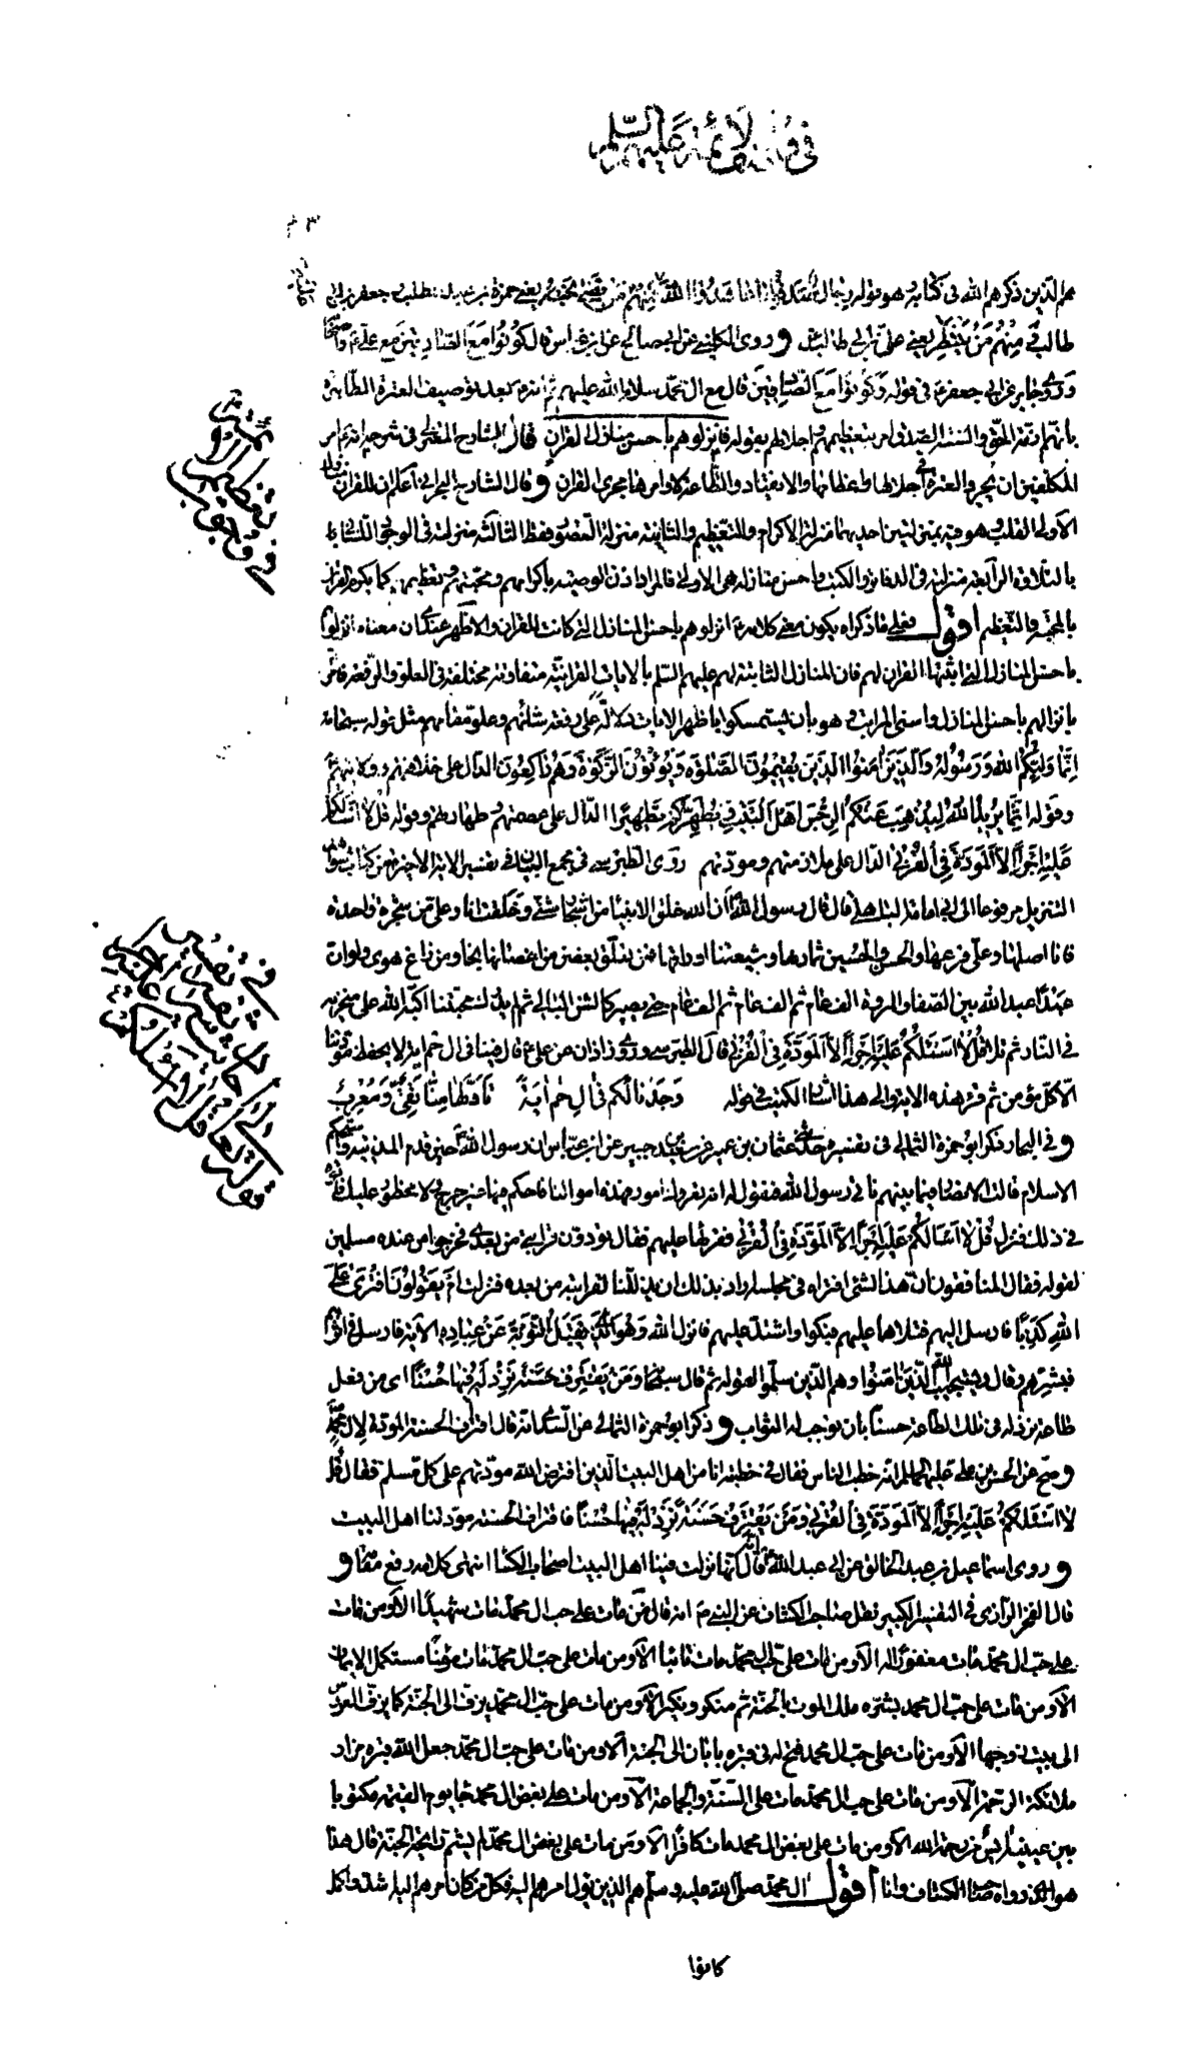 في وصف الأئمة عليهم السلام
هم الذين ذكرهم الله في كتابه وهو قوله رجال صدقوا ما عاهدوا الله عليه فمنهم من قضى نحبه يعني حمزة بن عبد المطلب وجعفر بن ابي
طالب و منهم من ينتظر يعني علي بن ابي طالب و روى الكلبي عن ابي صالح عن ابن عباس قال كونوا مع الصادقين مع علي و
وروى جابر عن ابي جعفر في قوله وكونوا مع الصادقين قال مع ال محمد سلام الله عليهم ثم انه بعد توصيف العترة الطاهرة
بانهم ازمة الحق والسنة الصدق امر بتعظيمهم واجلالهم بقوله فانزلوهم باحسن منازل القران قال الشارح المعتزلي في شرحه انه امر
المكلفين ان يجروا العترة في اجلالها واعظامها والانقياد والطاعة لاوامرها مجرى القران و قال الشارح البحراني اعلم ان للقران منازل
الاولى القلب وهو فيه بمنزلتين احديهما منزلة الاكرام والتعظيم والثانية منزلة التصور فقط الثالثة منزلته في الوجود اللساني
بالتلاوة الرابعة منزلته في الدفاتر والكتب واحسن منازله هي الاولى فالمراد اذن الوصية باكرامهم ومحبتهم وتعظيمهم كما يكرم القران
بالمحبة والتعظيم اقول فعلى ما ذكراه يكون معنى كلامه انزلوهم باحسن المنازل التي كانت للقران والاظهر عندي ان معناه انزلوهم
باحسن المنازل التي اثبتها القران لهم فان المنازل الثابتة لهم عليهم السلم بالايات القرانية متفاوتة مختلفة في العلو والرفعة فامر
بانزالهم باحسن المنازل واسنى المراتب وهو بان يستمسكوا باظهر الايات دلالة على رفعة شانهم وعلو مقامهم مثل قوله سبحانه
انما وليكم الله ورسوله والذين امنوا الذين يقيمون الصلوة ويؤتون الزكوة وهم راكعون الدال على خلافتهم وولايتهم
وقوله انما يريد الله ليذهب عنكم الرجس اهل البيت ويطهركم تطهيرا الدال على عصمتهم وطهارتهم وقوله قل لا اسالكم
عليه اجرا الا المودة في القربى الدال على ملازمتهم ومودتهم روى الطبرسي في مجمع البيان في تفسير الاية الاخيرة من كتاب شواهد
التنزيل مرفوعا الى ابي امامة الباهلي قال قال رسول الله ان الله خلق الانبياء من اشجار شتى وخلقت انا وعلي من شجرة واحدة
فانا اصلها وعلي فرعها والحسن والحسين ثمارها وشيعتنا اوراقها فمن تعلق بغصن من اغصانها نجا ومن زاغ هوى ولو ان
عبدا عبد الله بين الصفا والمروة الف عام ثم الف عام ثم الف عام حتى يصير كالشن البالي ثم لم يدرك محبتنا اكبه الله على منخريه
في النار ثم تلا قل لا اسئلكم عليه اجرا الا المودة في القربى قال الطبرسي وروى زاذان عن علي ع قال فينا في ال حم اية لا يحفظ مودتنا
الا كل مؤمن ثم قرء هذه الاية والى هذا اشار الكميت في قوله وجدنا لكم في ال حم اية تاولها منا تقي ومعرب
و في البحار ذكر ابو حمزة الثمالي في تفسيره حدثني عثمان بن عمير عن سعيد بن جبير عن ابن عباس ان رسول الله حين قدم المدينة واستحكم
الاسلام قالت الانصار فيما بينهم ناتي رسول الله فنقول له انه يعروك امور فهذه اموالنا فاحكم فيها غير حرج ولا محظور عليك فاتوه
في ذلك فنزل قل لا اسالكم عليه اجرا الا المودة في القربى فقراها عليهم فقال تودون قرابتي من بعدي فخرجوا من عنده مسلمين
لقوله فقال المنافقون ان هذا لشئ افتراه في مجلسه اراد بذلك ان يذللنا لقرابته من بعده فنزلت ام يقولون افترى على
الله كذبا فارسل اليهم فتلاها عليهم فبكوا واشتد عليهم فانزل الله وهو الذي يقبل التوبة عن عباده الاية فارسل في اثرهم
فبشرهم وقال ويستجيب الله الذين امنوا وهم الذين سلموا لقوله ثم قال سبحانه ومن يقترف حسنة نزد له فيها حسنا اى من فعل
طاعة نزد له في تلك الطاعة حسنا بان نوجب له الثواب و ذكر ابو حمزة الثمالي عن السدي انه قال اقتراف الحسنة المودة لال محمد
و صح عن الحسن بن علي عليهما السلم انه خطب الناس فقال في خطبته انا من اهل البيت الذين افترض الله مودتهم على كل مسلم فقال قل
لا اسئلكم عليه اجرا الا المودة في القربى ومن يقترف حسنة نزد له فيها حسنا فاقتراف الحسنة مودتنا اهل البيت
و روى اسماعيل بن عبد الخالق عن ابي عبد الله انه قال انها نزلت فينا اهل البيت اصحاب الكساء انتهى كلامه رفع مقامه و
قال الفخر الرازي في التفسير الكبير نقل صاحب الكشاف عن النبي ص انه قال من مات على حب ال محمد مات شهيدا الا ومن مات
على حب ال محمد مات مغفورا له الا ومن مات على حب ال محمد مات تائبا الا ومن مات على حب ال محمد مات مؤمنا مستكمل الايمان
الا ومن مات على حب ال محمد بشره ملك الموت بالجنة ثم منكر ونكير الا ومن مات على حب ال محمد يزف الى الجنة كما يزف العروس
الى بيت زوجها الا ومن مات على حب ال محمد فتح له في قبره بابان الى الجنة الا ومن مات على حب ال محمد جعل الله قبره مزار
ملائكة الرحمة الا ومن مات على حب ال محمد مات على السنة والجماعة الا ومن مات على بغض ال محمد جاء يوم القيمة مكتوبا
بين عينيه ايس من رحمة الله الا ومن مات على بغض ال محمد مات كافرا الا ومن مات على بغض ال محمد لم يشم رائحة الجنة قال هذا
هو الذي رواه صاحب الكشاف وانا اقول ال محمد صلى الله عليه وسلم هم الذين يؤل امرهم اليه فكل من كان امرهم اليه اشد واكمل
كانوا
في وجوب
تعظيم الائمة
في تفسير
قوله تعالى قل لا اسئلكم عليه اجرا